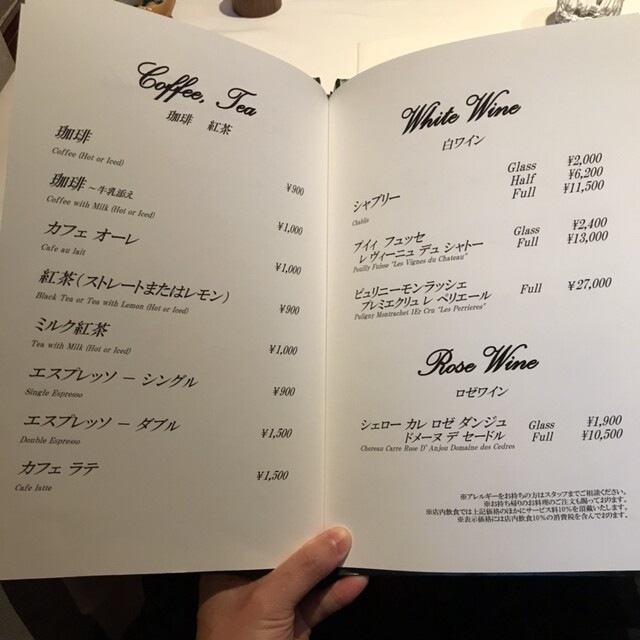 Coffee, Tea
珈琲 紅茶
珈琲
Coffee (Hot or Iced)
¥900
珈琲 ～牛乳添え
Coffee with Milk (Hot or Iced)
¥1,000
カフェ オーレ
Cafe au lait
¥1,000
紅茶（ストレートまたはレモン）
Black Tea or Tea with Lemon (Hot or Iced)
¥900
ミルク紅茶
Tea with Milk (Hot or Iced)
¥1,000
エスプレッソ － シングル
Single Espresso
¥900
エスプレッソ － ダブル
Double Espresso
¥1,500
カフェ ラテ
Cafe latte
¥1,500
White Wine
白ワイン
シャブリー
Chablis
Glass ¥2,000
Half ¥6,200
Full ¥11,500
プイィ フュッセ
レ ヴィーニュ デュ シャトー
Pouilly Fuisse "Les Vignes du Chateau"
Glass ¥2,400
Full ¥13,000
ピュリニーモンラッシェ
プレミエクリュ レ ペリエール
Puligny Montrachet 1Er Cru "Les Perrieres"
Full ¥27,000
Rose Wine
ロゼワイン
シェロー カレ ロゼ ダンジュ
ドメーヌ デ セードル
Chereau Carre Rose D' Anjou Domaine des Cedres
Glass ¥1,900
Full ¥10,500
※アレルギーをお持ちの方はスタッフまでご相談ください。
※お持ち帰りのお料理のご注文も賜っております。
※店内飲食では上記価格のほかにサービス料10%を頂戴いたします。
※表示価格には店内飲食10%の消費税を含んでおります。